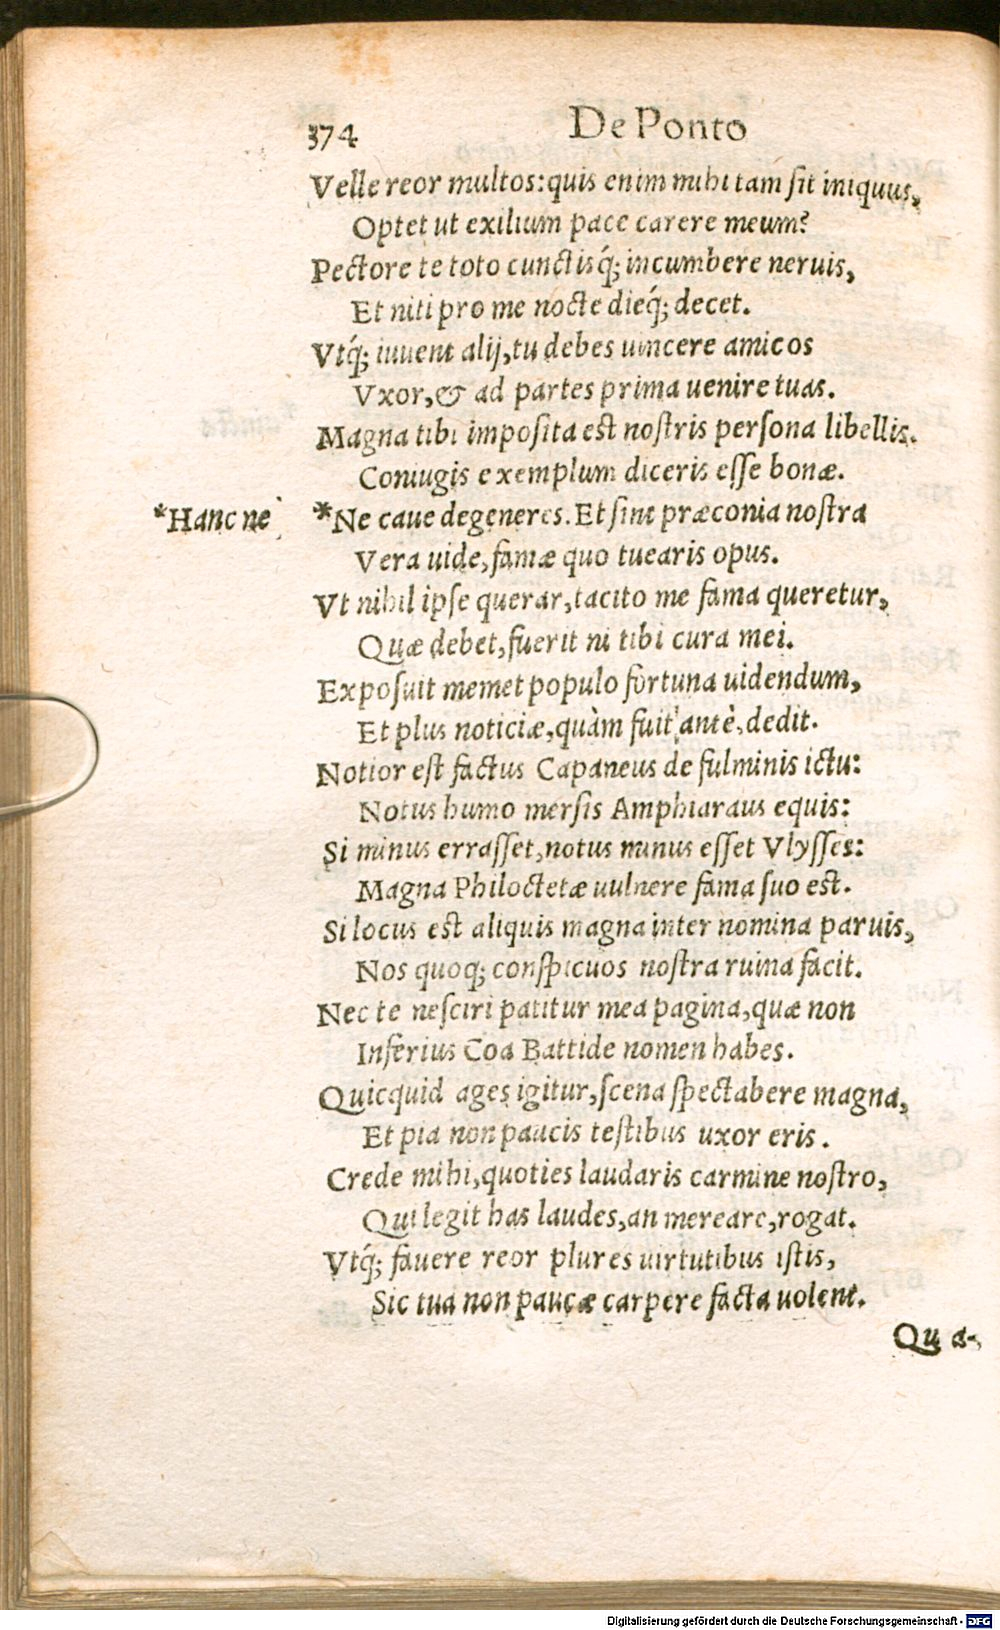 374 De Ponto
Velle reor multos: quis enim mihi tam sit iniquus,
Optet ut exilium pace carere meum?
Pectore te toto cunctisq́; incumbere neruis,
Et niti pro me nocte dieq́; decet.
Vtq́; iuuent alij, tu debes uincere amicos
Vxor, & ad partes prima uenire tuas.
Magna tibi imposita est nostris persona libellis.
Coniugis exemplum diceris esse bonæ.
*Hanc nè *Ne caue degeneres. Et sint præconia nostra
Vera uide, famæ quo tuearis opus.
Vt nihil ipse querar, tacito me fama queretur,
Quæ debet, fuerit ni tibi cura mei.
Exposuit memet populo fortuna uidendum,
Et plus noticiæ, quàm fuit antè, dedit.
Notior est factus Capaneus de fulminis ictu:
Notus humo mersis Amphiaraus equis:
Si minus errasset, notus minus esset Vlysses:
Magna Philoctetæ uulnere fama suo est.
Si locus est aliquis magna inter nomina paruis,
Nos quoq; conspicuos nostra ruina facit.
Nec te nesciri patitur mea pagina, quæ non
Inferius Coa Battide nomen habes.
Quicquid ages igitur, scena spectabere magna,
Et pia non paucis testibus uxor eris.
Crede mihi, quoties laudaris carmine nostro,
Qui legit has laudes, an mereare, rogat.
Vtq́; fauere reor plures uirtutibus istis,
Sic tua non paucæ carpere facta uolent.
Qua-
Digitalisierung gefördert durch die Deutsche Forschungsgemeinschaft - DFG